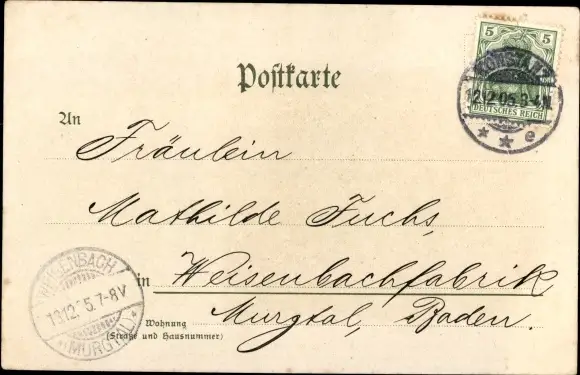 5 5
KONSTANZ
12.12.05.3-4N.
DEUTSCHES REICH
* * e
Postkarte
An
Fräulein
Mathilde Fuchs,
in Weisenbachfabrik,
Murgtal, Baden.
Wohnung
(Straße und Hausnummer)
WEISENBACH
13.12. 5.7-8V
* (MURGTAL) *